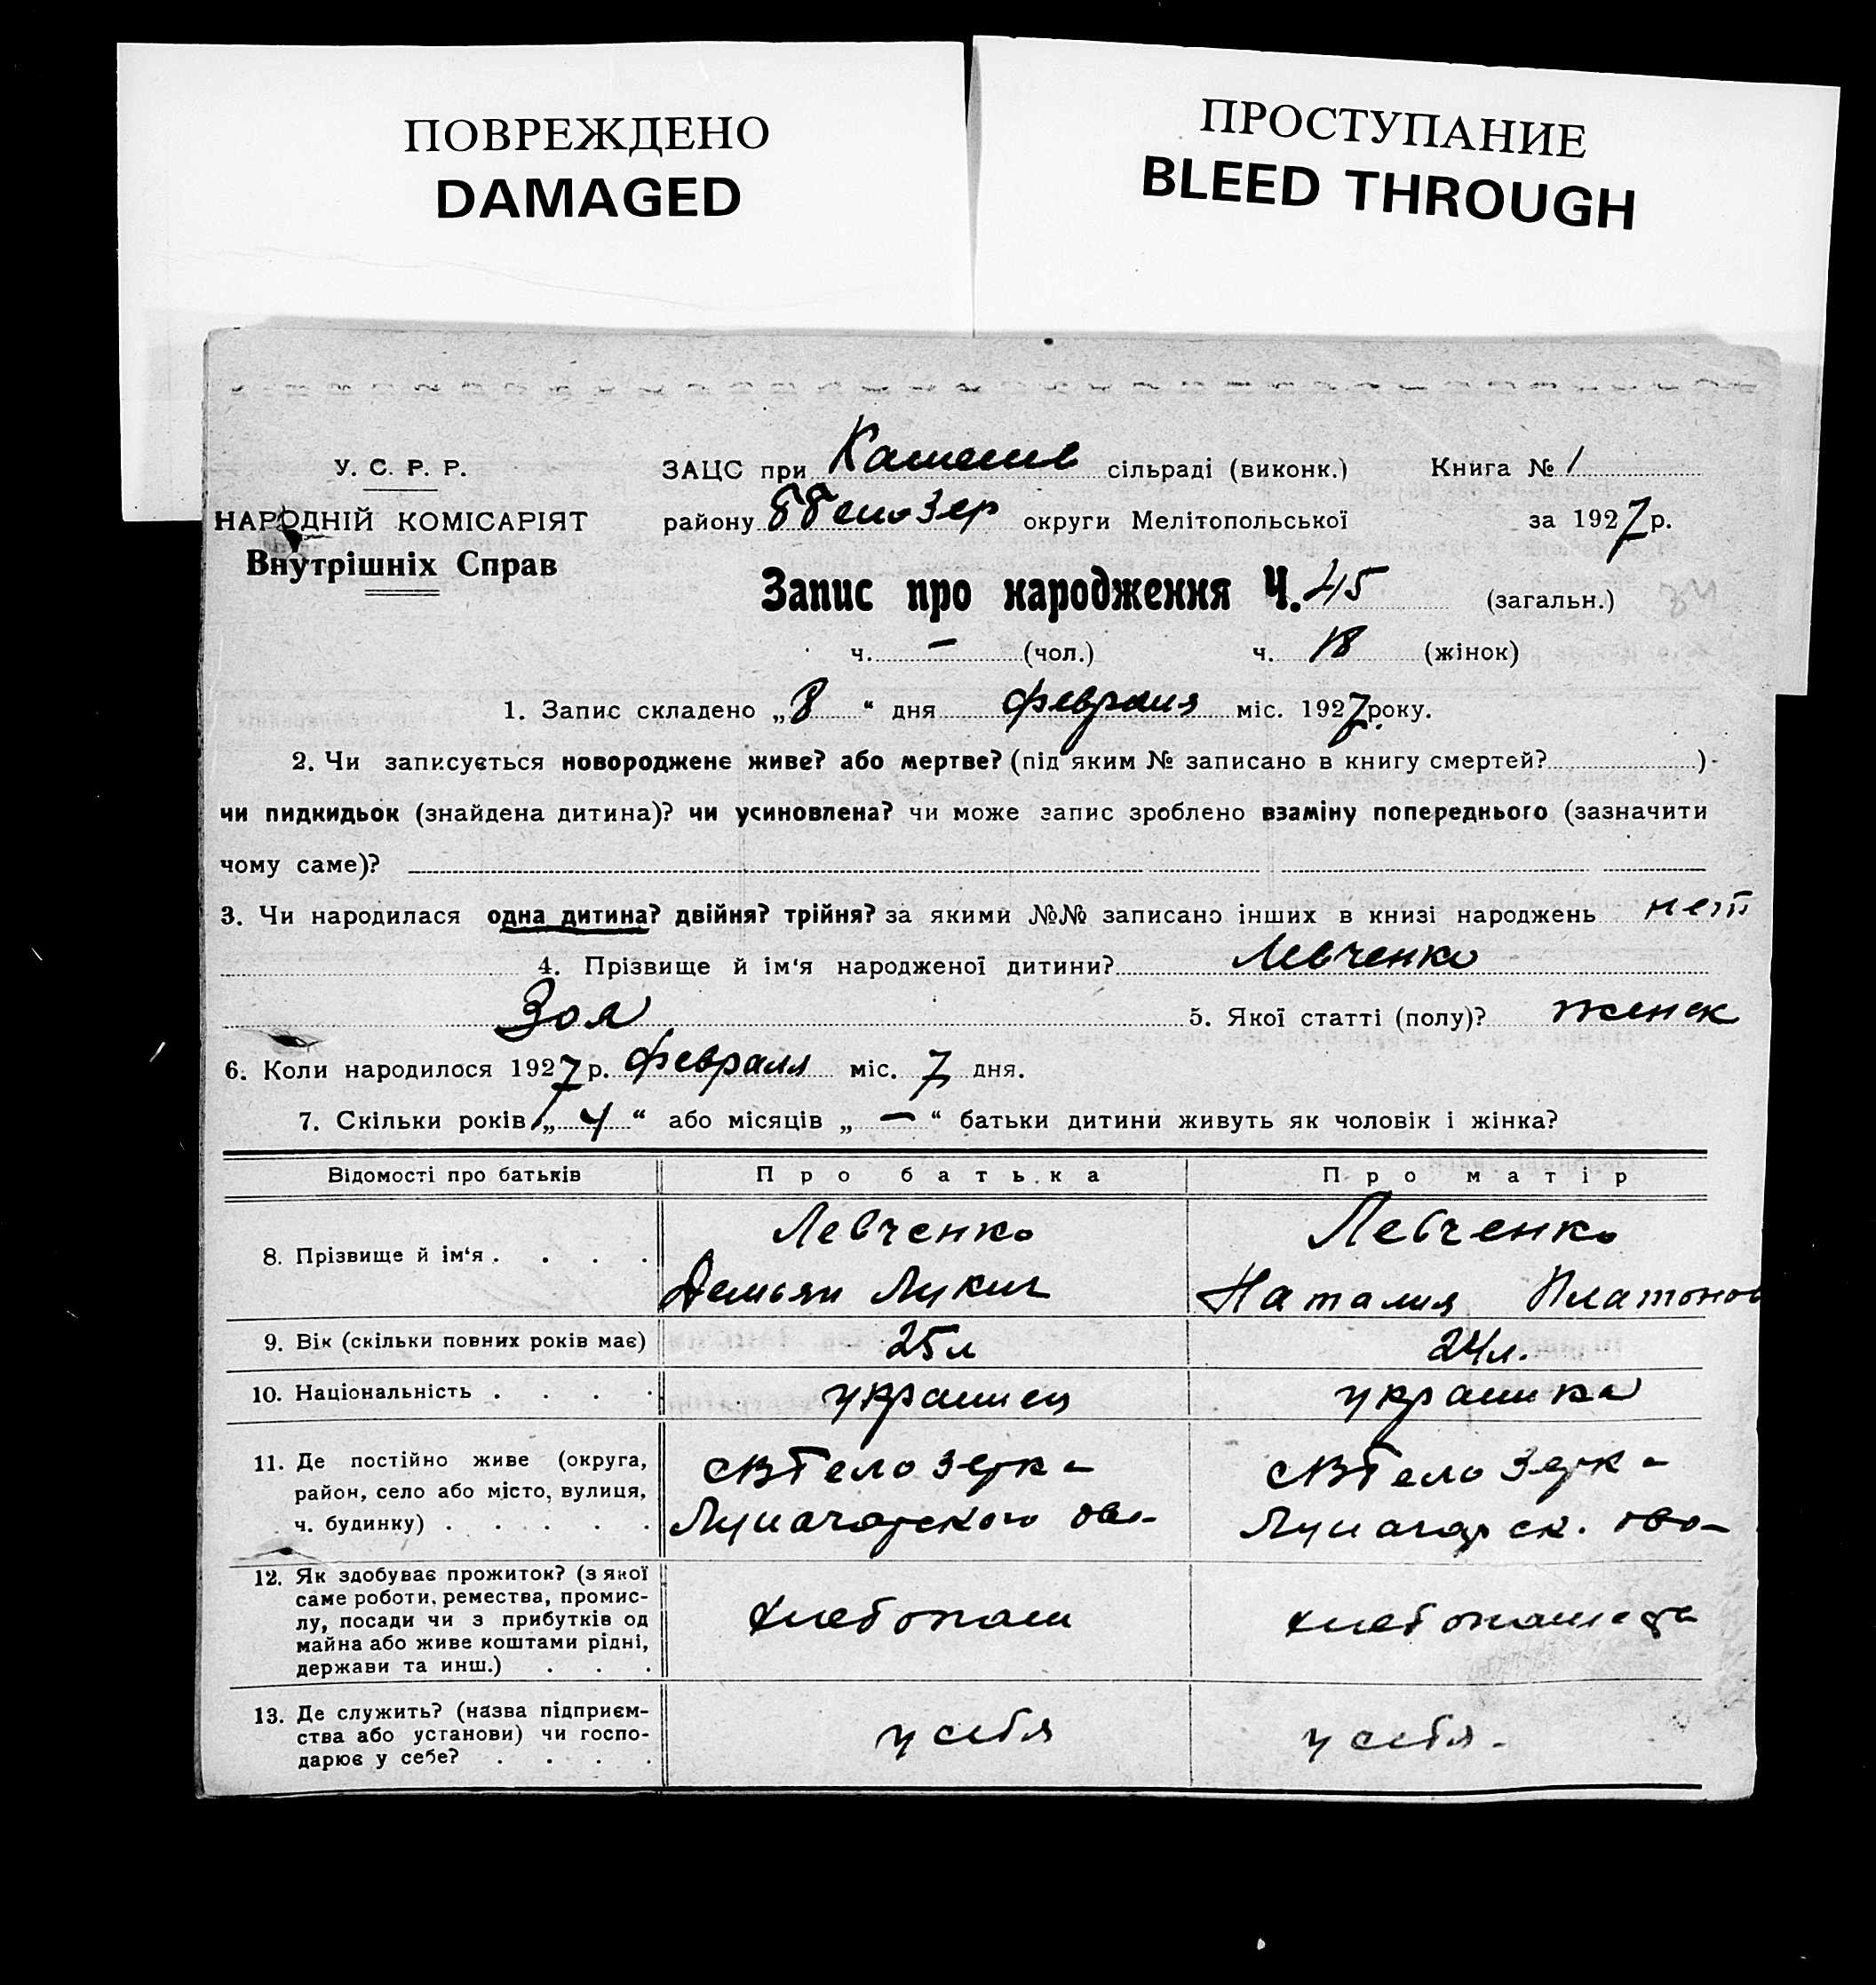 ПОВРЕЖДЕНО
DAMAGED
ПРОСТУПАНИЕ
BLEED THROUGH
У. С. Р. Р.
НАРОДНІЙ КОМІСАРІЯТ
Внутрішніх Справ
ЗАЦС при сільраді (виконк.) Книга № 1
району округи Мелітопольської за 1927 р.
Запис про народження Ч. 45 (загальн.)
ч. — (чол.) ч. 18 (жінок)
1. Запис складено „8“ дня февраля міс. 1927 року.
2. Чи записується новороджене живе? або мертве? (під яким № записано в книгу смертей? )
чи пидкидьок (знайдена дитина)? чи усиновлена? чи може запис зроблено взаміну попереднього (зазначити
чому саме)?
3. Чи народилася одна дитина? двійня? трійня? за якими №№ записано інших в книзі народжень нет
4. Прізвище й ім‘я народженої дитини? Левченко
Зоя 5. Якої статті (полу)? женск
6. Коли народилося 1927 р. февраля міс. 7 дня.
7. Скільки років „4“ або місяців „—“ батьки дитини живуть як чоловік і жінка?
Відомості про батьків Про батька Про матір
8. Прізвище й ім‘я . . . . Левченко Левченко
Демьян Лукич Наталия Платонов
9. Вік (скільки повних років має) 25 л 24 л.
10. Національність . . . . украинец украинка
11. Де постійно живе (округа,
район, село або місто, вулиця,
ч. будинку) . . . . .
Белозерка Белозерка
Луначарского Луначарск.
12. Як здобуває прожиток? (з якої
саме роботи, ремества, промис-
лу, посади чи з прибутків од
майна або живе коштами рідні,
держави та инш.) . . .
хлебопаш
13. Де служить? (назва підприєм-
ства або установи) чи госпо-
дарює у себе? . . . .
у себя у себя.